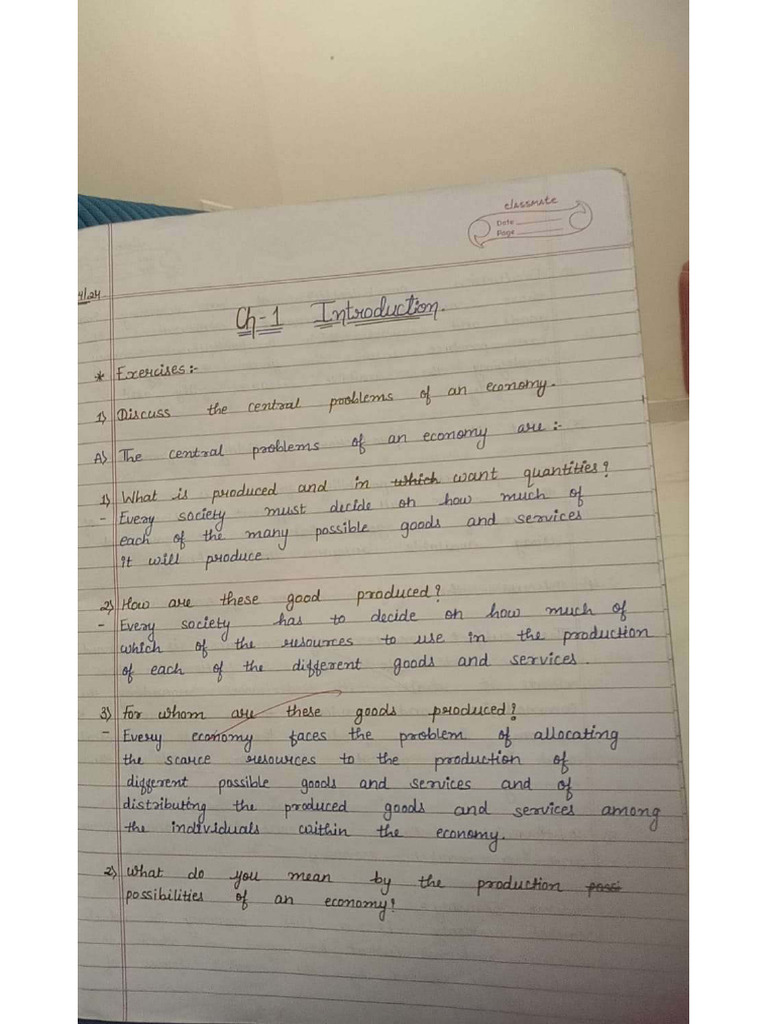 classmate
Date
Page
4/24
Ch-1 Introduction.
* Exercises:-
1) Discuss the central problems of an economy.
A) The central problems of an economy are:-
1) What is produced and in which want quantities?
- Every society must decide on how much of
each of the many possible goods and services
it will produce.
2) How are these good produced?
- Every society has to decide on how much of
which of the resources to use in the production
of each of the different goods and services.
3) For whom are these goods produced?
- Every economy faces the problem of allocating
the scarce resources to the production of
different possible goods and services and of
distributing the produced goods and services among
the individuals within the economy.
2) What do you mean by the production possi
possibilities of an economy?